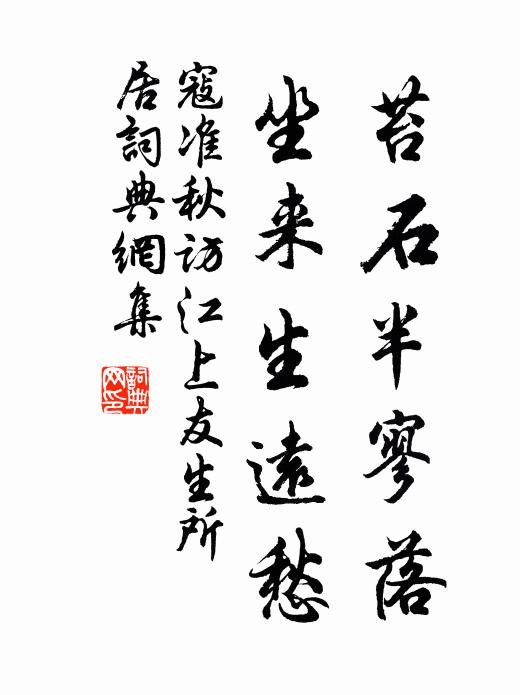 苔石半寥落
坐来生遠愁
寇准秋访江上友生所
居詞典網集
詞典
网印